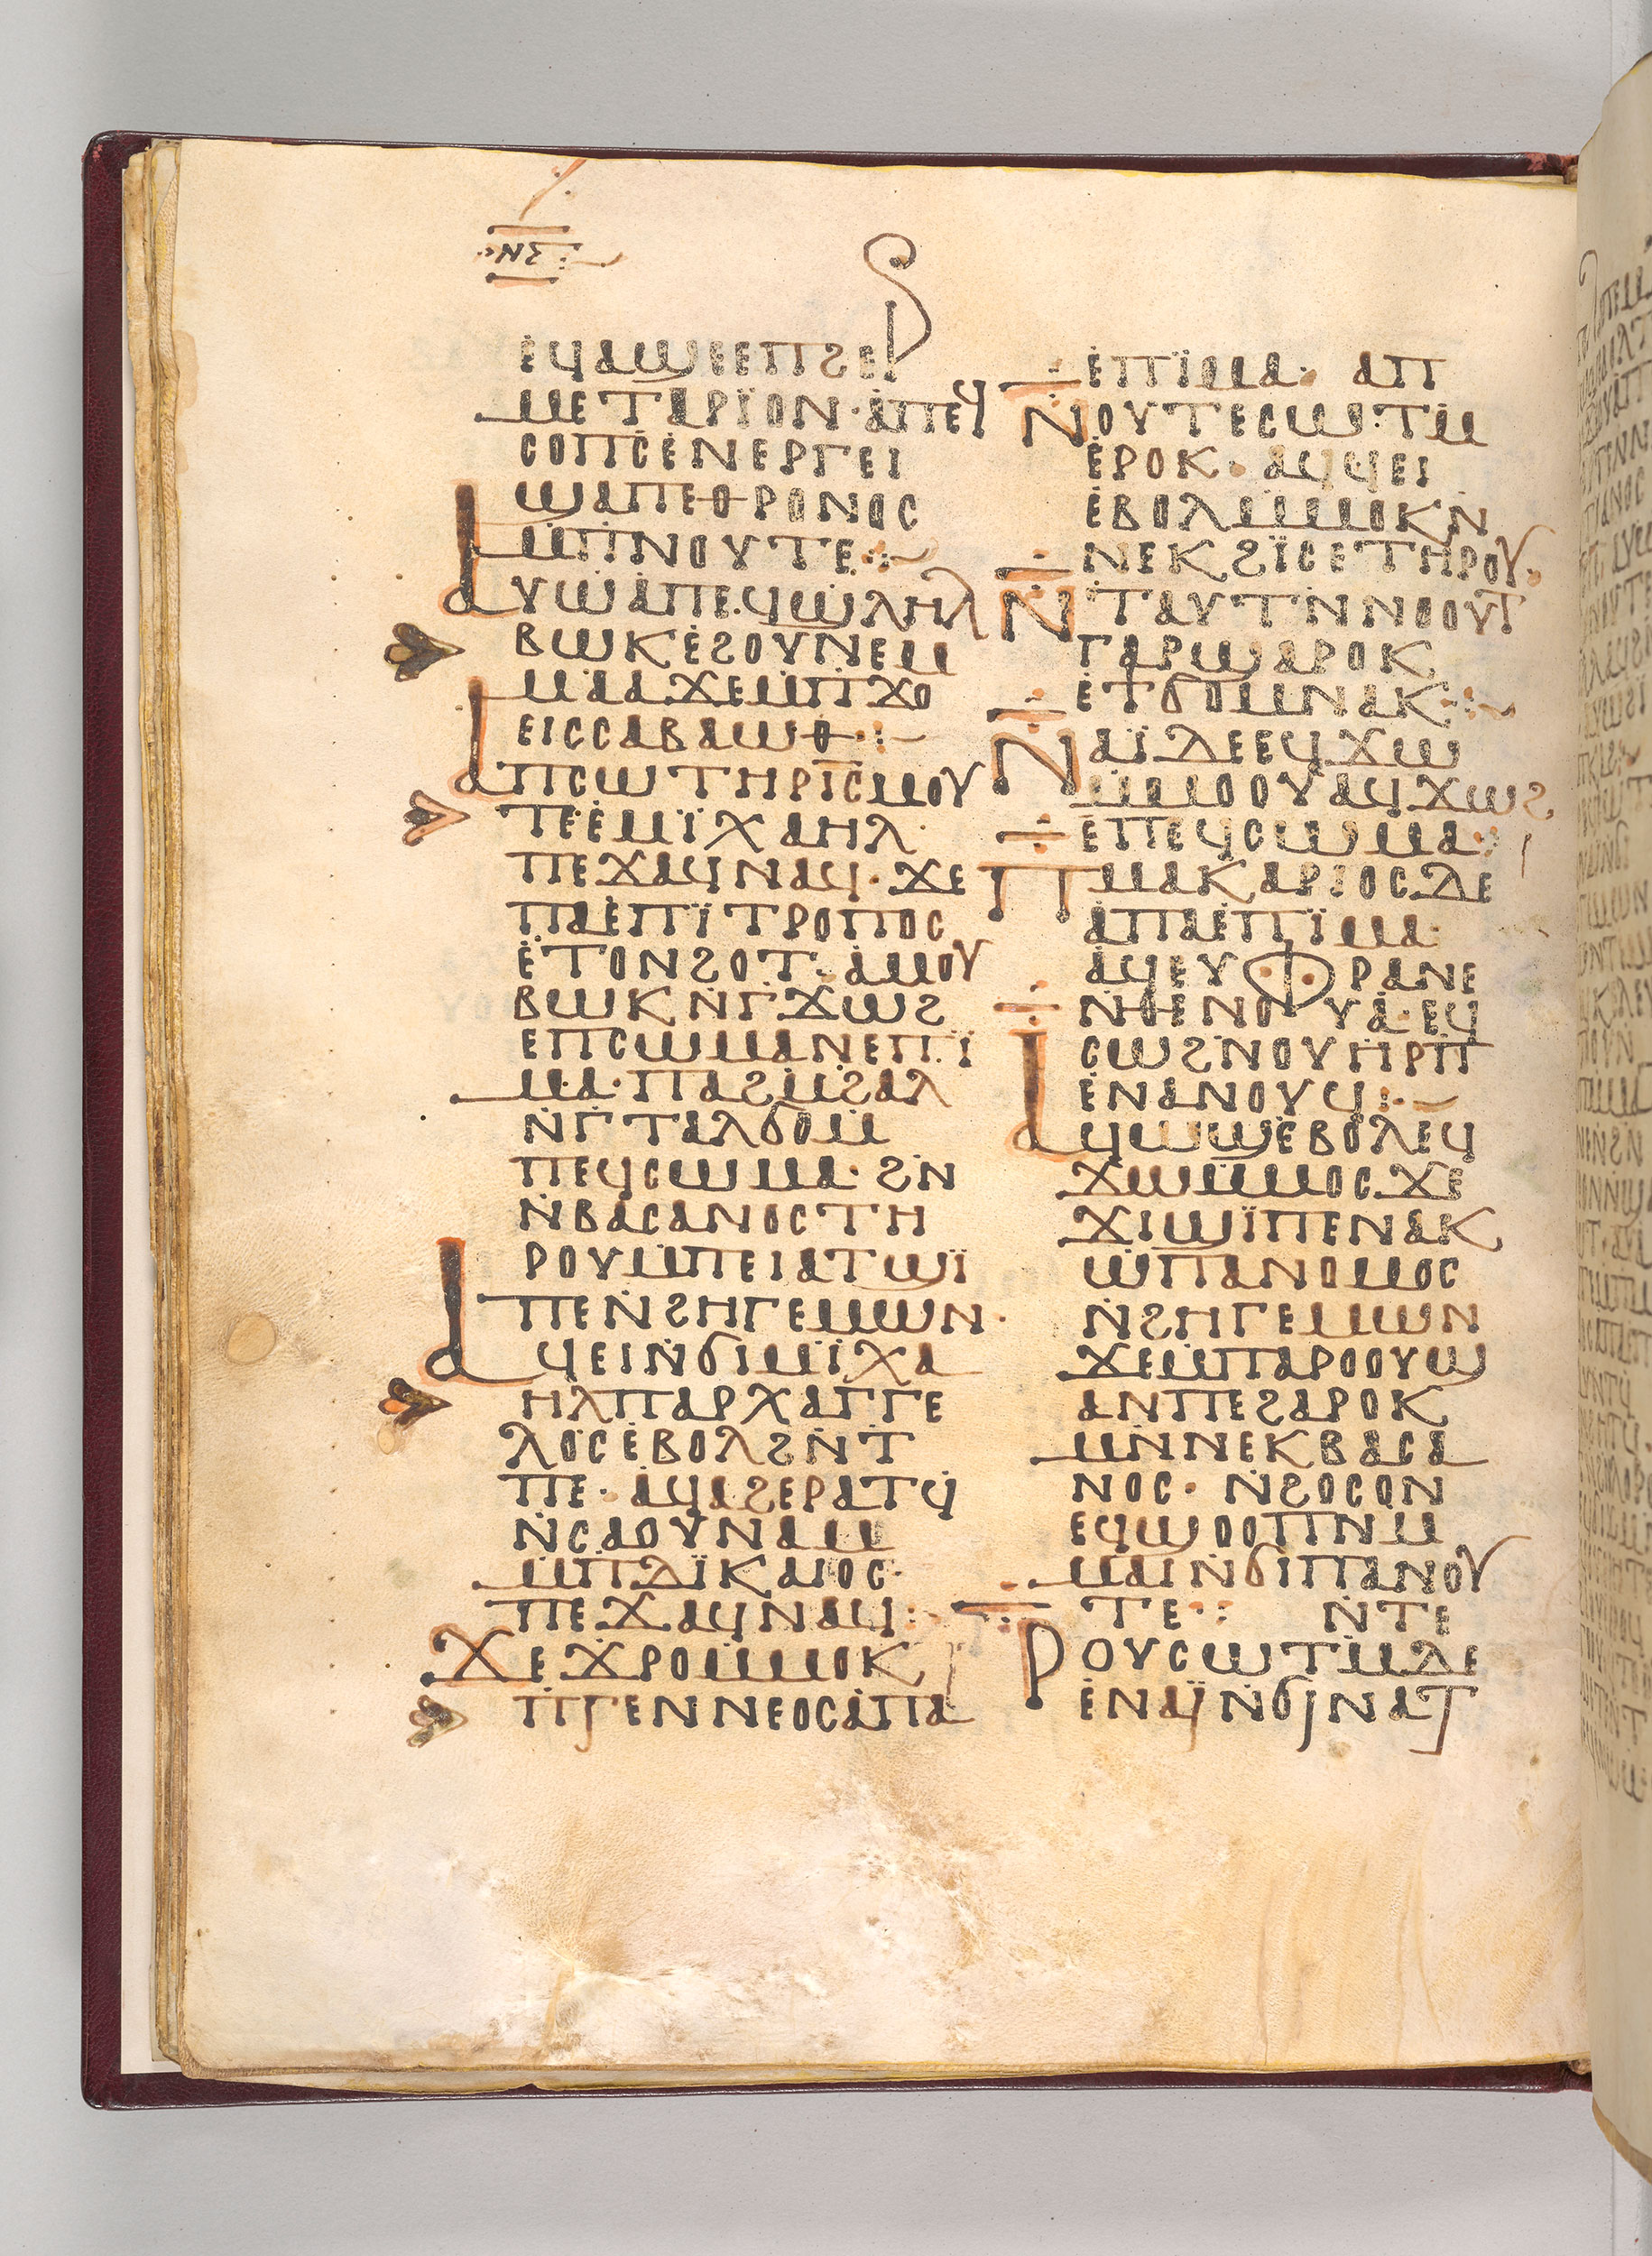 ⲛⲋ
ⲉϥⲁϣⲉⲉⲡϩⲉⲣ
ⲙⲉⲧⲁⲣⲓ̈ⲟⲛ· ⲁⲡⲉϥ
ⲥⲟⲡⲥⲉⲛⲉⲣⲅⲉⲓ
ϣⲁⲡⲉⲑⲣⲟⲛⲟⲥ
ⲙⲡⲛⲟⲩⲧⲉ:
ⲁⲩⲱⲁⲡⲉϥϣⲗⲏⲗ
ⲃⲱⲕⲉϩⲟⲩⲛⲉⲙ
ⲙⲁⲁϫⲉⲙⲡϫⲟ
ⲉⲓⲥⲥⲁⲃⲁⲱⲑ:
ⲁⲡⲥⲱⲧⲏⲣⲥⲙⲟⲩ
ⲧⲉⲉⲙⲓ̈ⲭⲁⲏⲗ
ⲡⲉϫⲁϥⲛⲁϥ· ϫⲉ
ⲡⲁⲉⲡⲓ̈ⲧⲣⲟⲡⲟⲥ
ⲉⲧⲟⲛϩⲟⲧ· ⲁⲙⲟⲩ
ⲃⲱⲕⲛⲅϫⲱϩ
ⲉⲡⲥⲱⲙⲁⲛⲉⲡⲓ̈
ⲙⲁ· ⲡⲁϩⲙϩⲁⲗ
ⲛⲅⲧⲁⲗϭⲟⲙ
ⲡⲉϥⲥⲱⲙⲁ· ϩⲛ
ⲛⲃⲁⲥⲁⲛⲟⲥⲧⲏ
ⲣⲟⲩⲙⲡⲉⲓⲁⲧϣⲓ̈
ⲡⲉⲛϩⲏⲅⲉⲙⲱⲛ·
ⲁϥⲉⲓⲛϭⲓⲙⲓ̈ⲭⲁ
ⲏⲗⲡⲁⲣⲭⲁⲅⲅⲉ
ⲗⲟⲥⲉⲃⲟⲗϩⲛⲧ
ⲡⲉ· ⲁϥⲁϩⲉⲣⲁⲧϥ
ⲛⲥⲁⲟⲩⲛⲁⲙ
ⲙⲡⲇⲓ̈ⲕⲁⲓⲟⲥ·
ⲡⲉϫⲁϥⲛⲁϥ:
ϫⲉϫⲣⲟⲙⲙⲟⲕ
ⲡⲅⲉⲛⲛⲉⲟⲥⲁⲡⲁ
ⲉⲡⲓ̈ⲙⲁ· ⲁⲡ
ⲛⲟⲩⲧⲉⲥⲱⲧⲙ
ⲉⲣⲟⲕ· ⲁϥϥⲉⲓ
ⲉⲃⲟⲗⲙⲙⲟⲕⲛ
ⲛⲉⲕϩⲓ̈ⲥⲉⲧⲏⲣⲟⲩ·
ⲛⲧⲁⲩⲧⲛⲛⲟⲟⲩⲧ
ⲅⲁⲣϣⲁⲣⲟⲕ
ⲉϯϭⲟⲙⲛⲁⲕ:
ⲛⲁⲓ̈ⲇⲉⲉϥϫⲱ
ⲙⲙⲟⲟⲩⲁϥϫⲱϩ
ⲉⲡⲉϥⲥⲱⲙⲁ:
ⲡⲙⲁⲕⲁⲣⲓⲟⲥⲇⲉ
ⲁⲡⲁⲉⲡⲓ̈ⲙⲁ·
ⲁϥⲉⲩⲫⲣⲁⲛⲉ
ⲛⲑⲉⲛⲟⲩⲁ· ⲉϥ
ⲥⲱϩⲛⲟⲩⲏⲣⲡ
ⲉⲛⲁⲛⲟⲩϥ:
ⲁϥⲱϣⲉⲃⲟⲗⲉϥ
ϫⲱⲙⲙⲟⲥϫⲉ
ϫⲓϣⲓ̈ⲡⲉⲛⲁⲕ
ⲱⲡⲁⲛⲟⲙⲟⲥ
ⲛϩⲏⲅⲉⲙⲱⲛ
ϫⲉⲙⲡⲁⲣⲟⲟⲩϣ
ⲁⲛⲡⲉϩⲁⲣⲟⲕ
ⲙⲛⲛⲉⲕⲃⲁⲥⲁ
ⲛⲟⲥ· ⲛϩⲟⲥⲟⲛ
ⲉϥϣⲟⲟⲡⲛⲙ
ⲙⲁⲓⲛϭⲓⲡⲁⲛⲟⲩ
ⲧⲉ: ⲛⲧⲉ
ⲣⲟⲩⲥⲱⲧⲙⲇⲉ
ⲉⲛⲁⲓ̈ⲛϭⲓⲛⲁⲧ